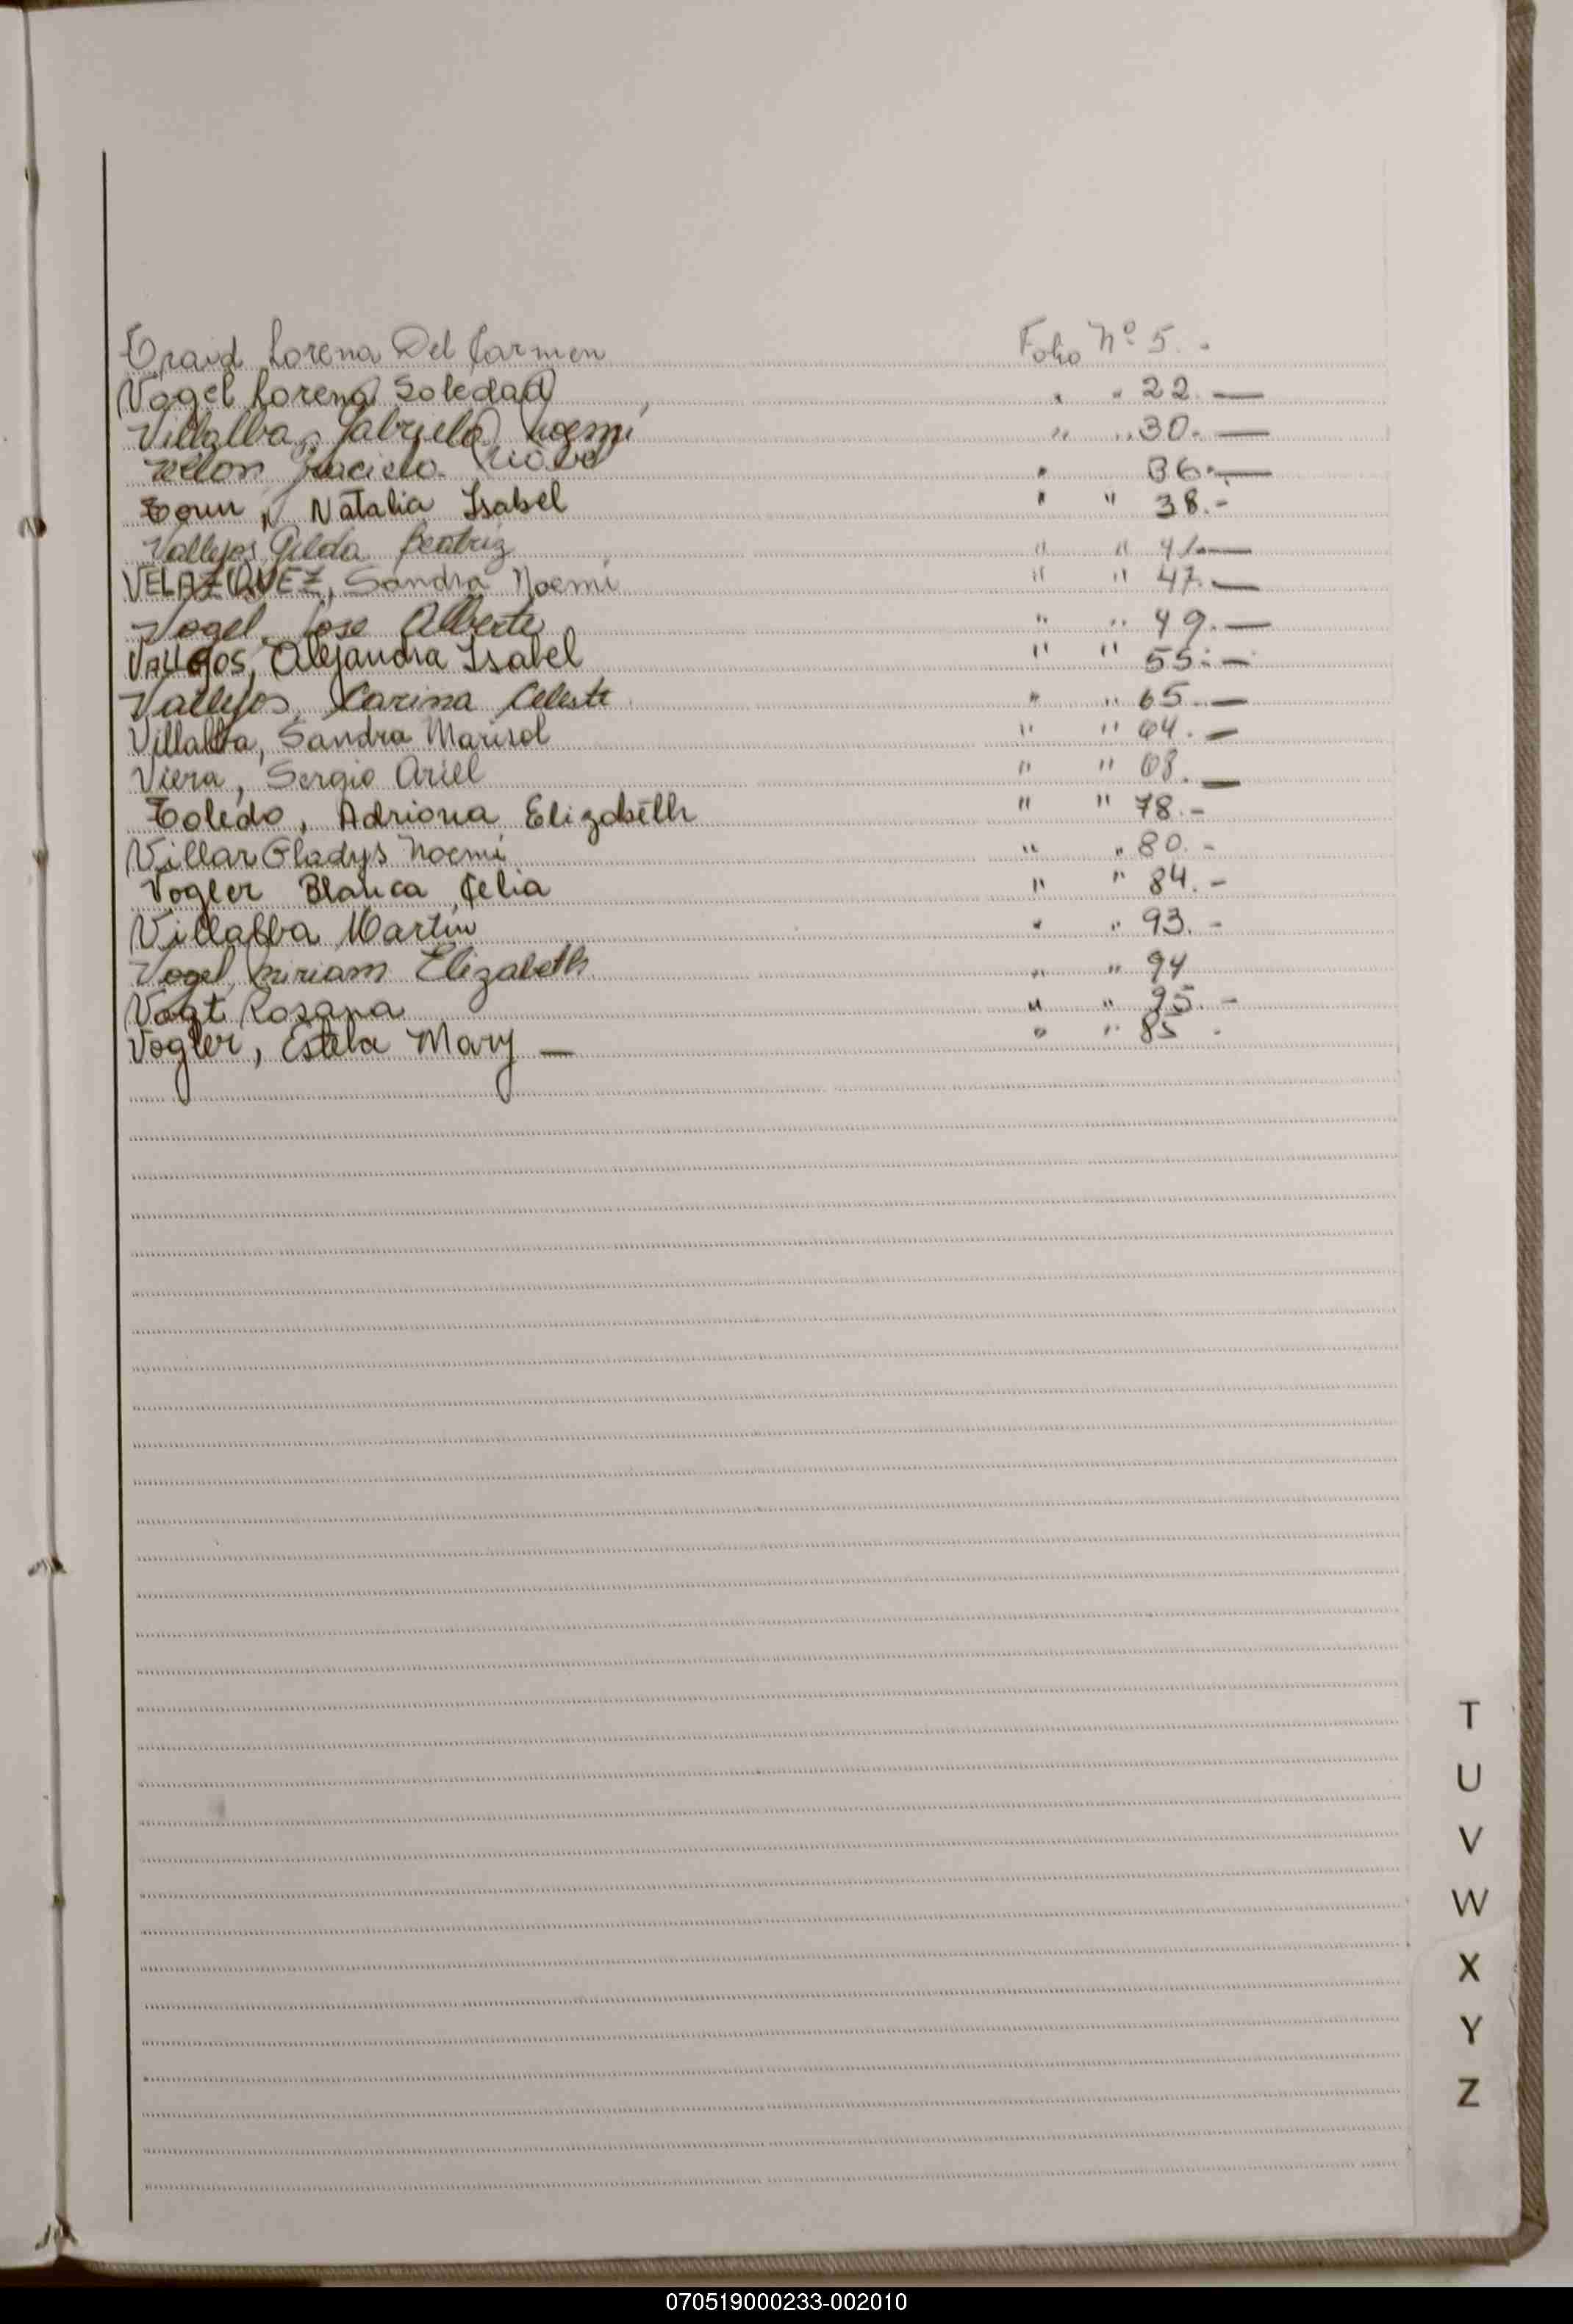 Lorena Del Carmen Folio Nº 5. -
Vogel Lorena Soledad " " 22. —
Villalba, Gabriela Noemi " " 30. —
Graciela " 36. —
Natalia Isabel " " 38. -
Vallejos Gilda Beatriz " " 41. —
VELAZQUEZ, Sandra Noemi " " 47. —
Vogel, Jose Alberto " " 49. —
VALLEJOS, Alejandra Isabel " " 55. —
Vallejos, Carina Celeste " " 65. —
Villalba, Sandra Marisol " " 64. —
Viera, Sergio Ariel " " 68. —
Toledo, Adriana Elizabeth " " 78. -
Villar Gladys Noemi " " 80. -
Vogler Blanca Celia " " 84. -
Villalba Martin " " 93. -
Vogel, Miriam Elizabeth " " 94
Vogt Rosana " " 95. -
Vogler, Estela Mary — " " 85 .
T
U
V
W
X
Y
Z
070519000233-002010